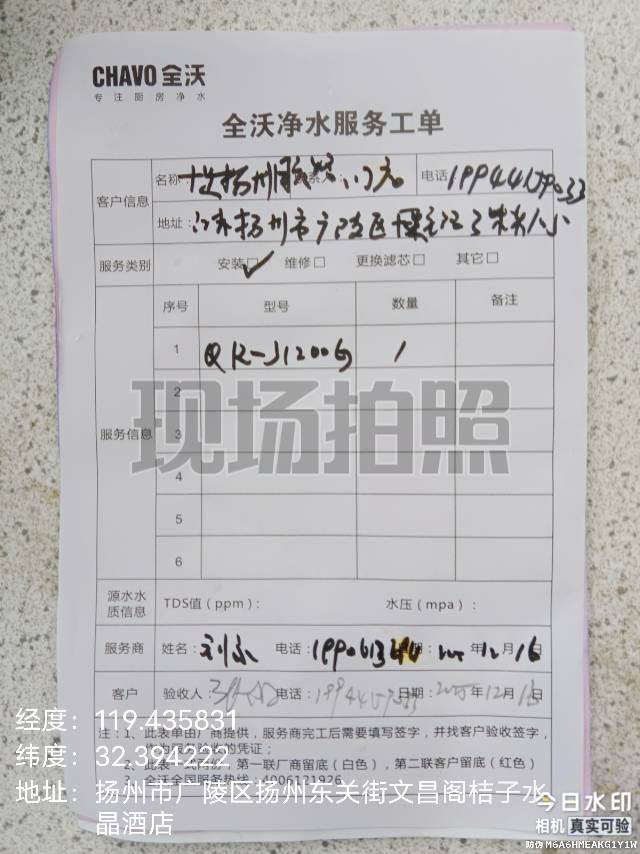 CHAVO 全沃
专注厨房净水
全沃净水服务工单
客户信息
名称
电话 19944159033
地址: 扬州市广陵区
服务类别 安装□ ✓ 维修□ 更换滤芯□ 其它□
服务信息
序号 型号 数量 备注
1 QR-J1200G 1
2
3
4
5
6
现场拍照
源水水质信息 TDS值（ppm）: 水压（mpa）:
服务商 姓名: 电话: 期: 年12月16日
客户 验收人: 电话: 日期: 年12月16日
注：1、此表单由厂商提供，服务商完工后需要填写签字，并找客户验收签字，
第一联厂商留底（白色），第二联客户留底（红色）
全沃全国服务热线：4006121926
经度: 119.435831
纬度: 32.394222
地址: 扬州市广陵区扬州东关街文昌阁桔子水
晶酒店
今日水印
相机 真实可验
防伪 M6A6HMEAKG1Y1W